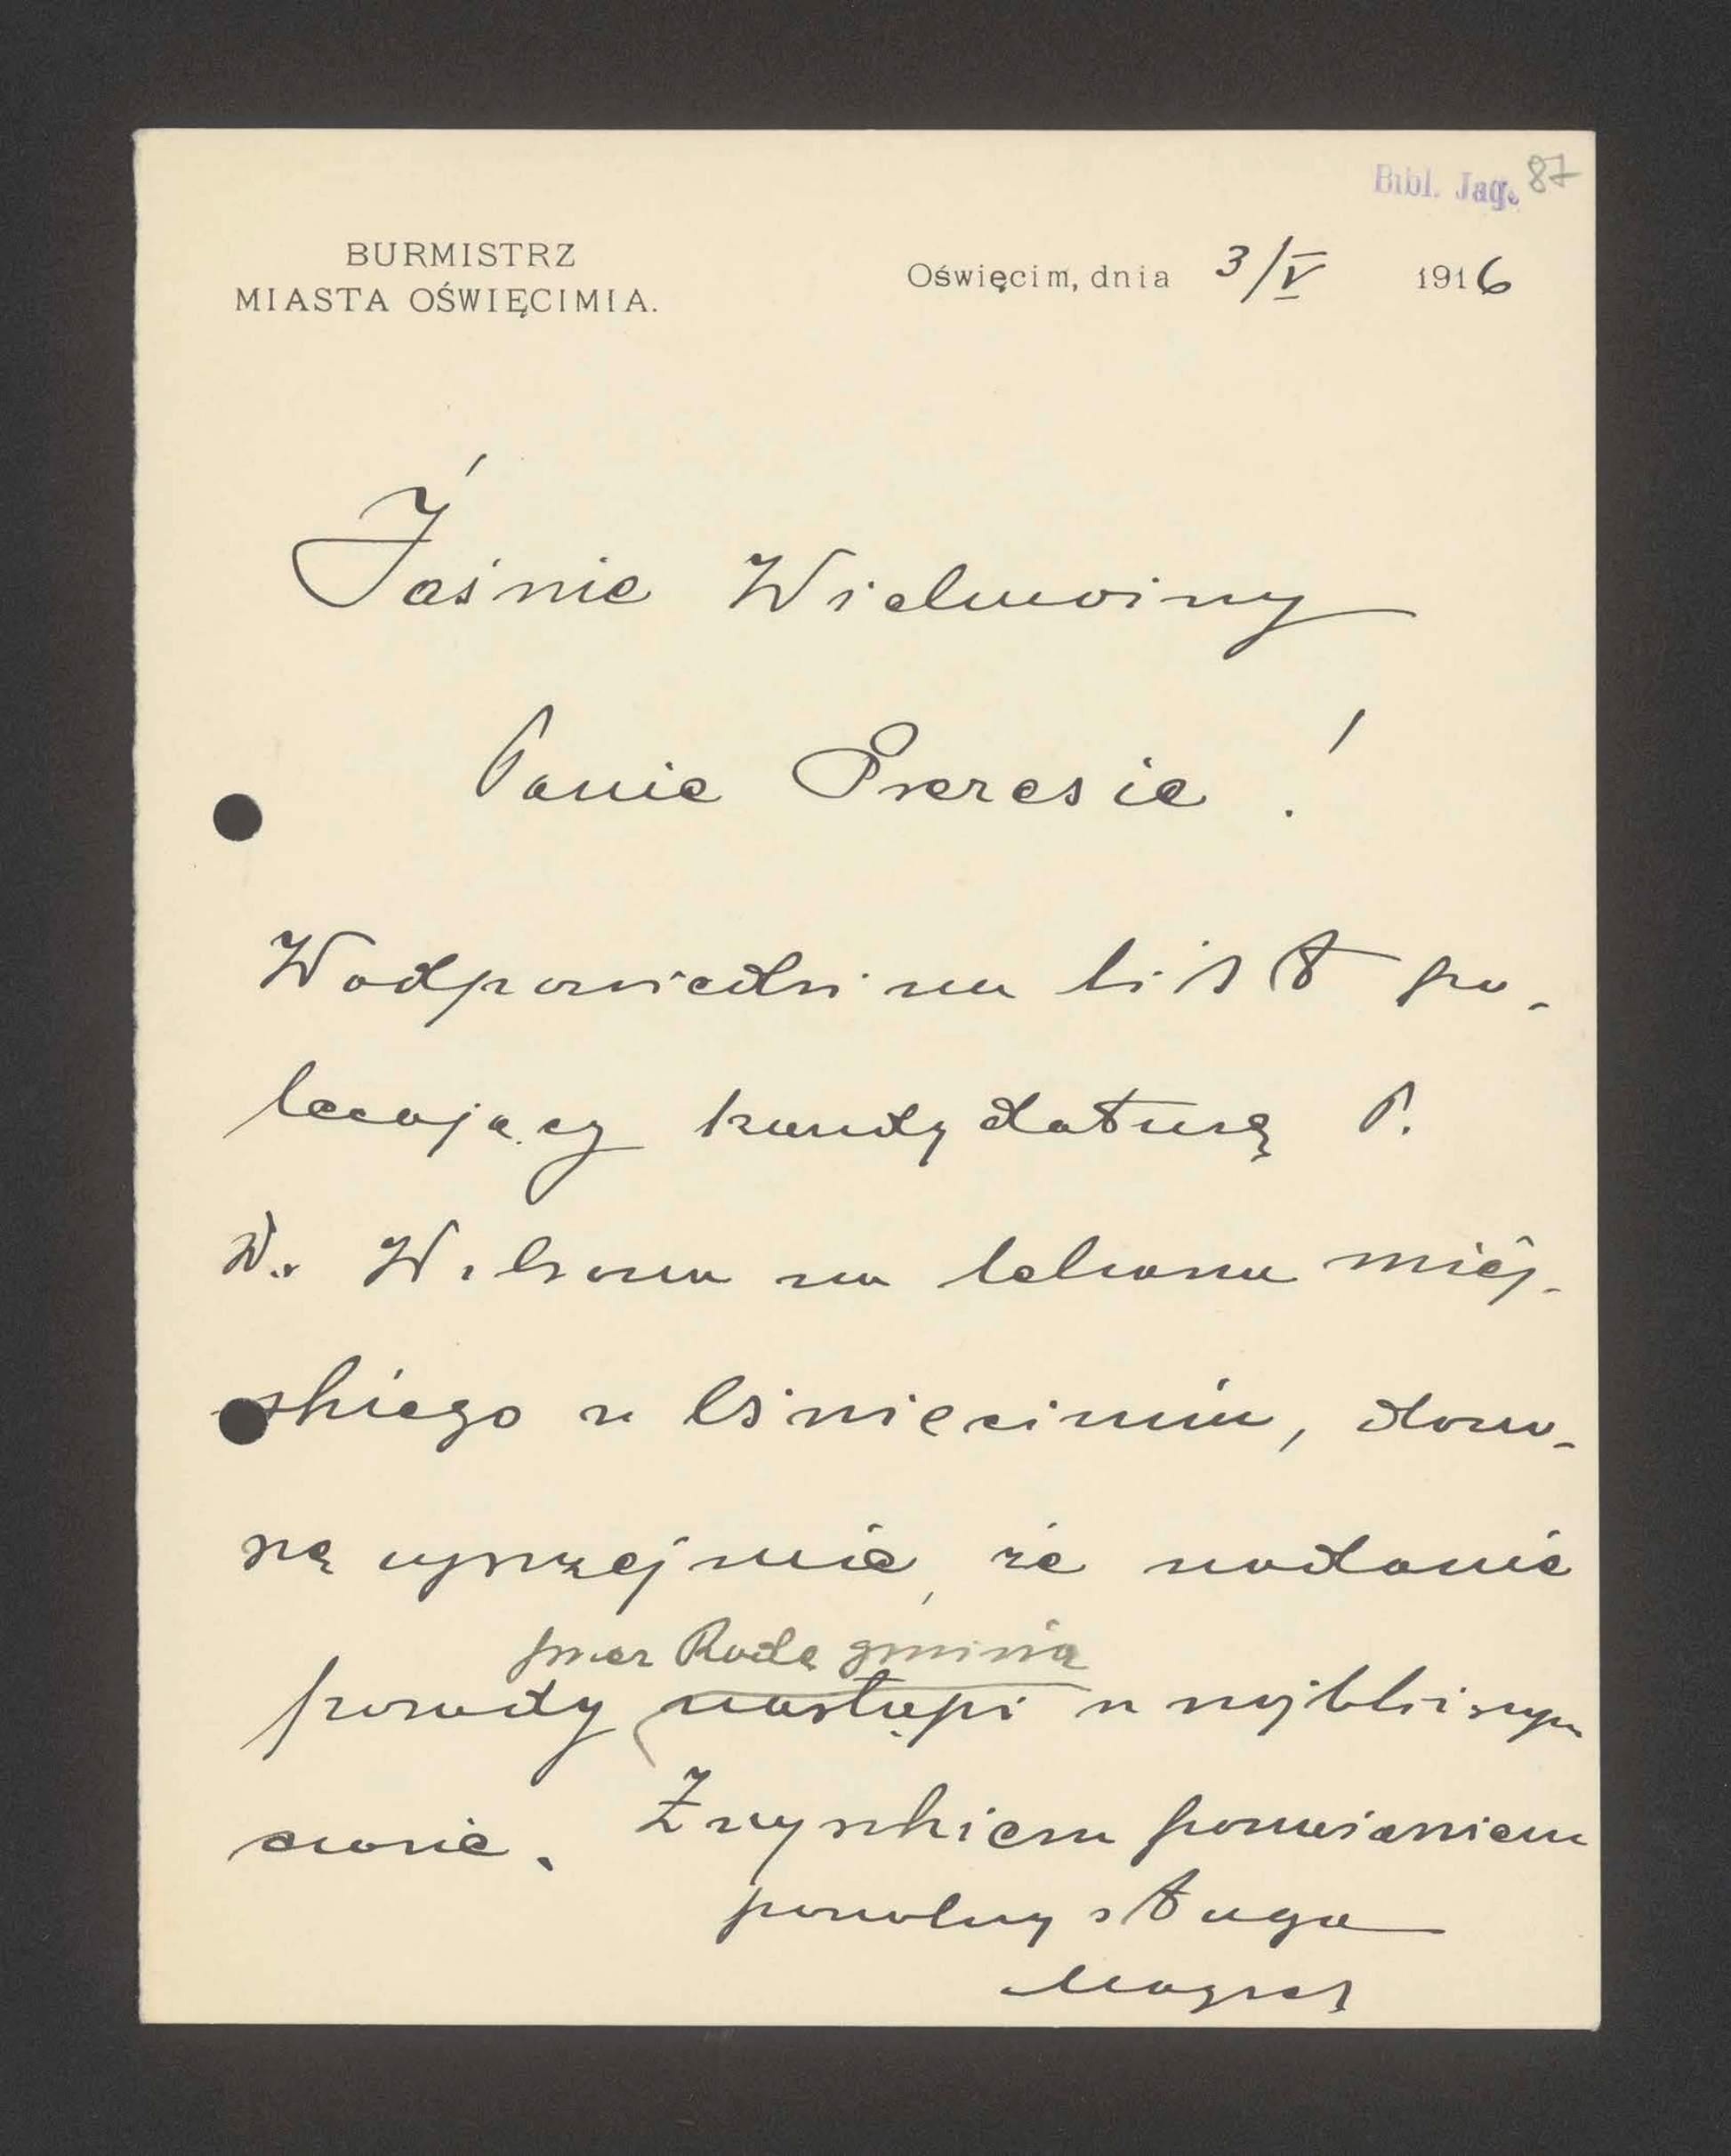 Bibl. Jag. 87
BURMISTRZ
MIASTA OŚWIĘCIMIA.
Oświęcim, dnia 3/V 1916
Jaśnie Wielmożny
Panie Prezesie!
W odpowiedzi na list po-
lecający kandydaturę P.
Dr. na lekarza miej-
skiego w Oświęcimiu, dono-
szę uprzejmie, że nadanie
posady przez Radę gminną nastąpi w najbliższym
czasie. Z wysokiem poważaniem
powolny sługa